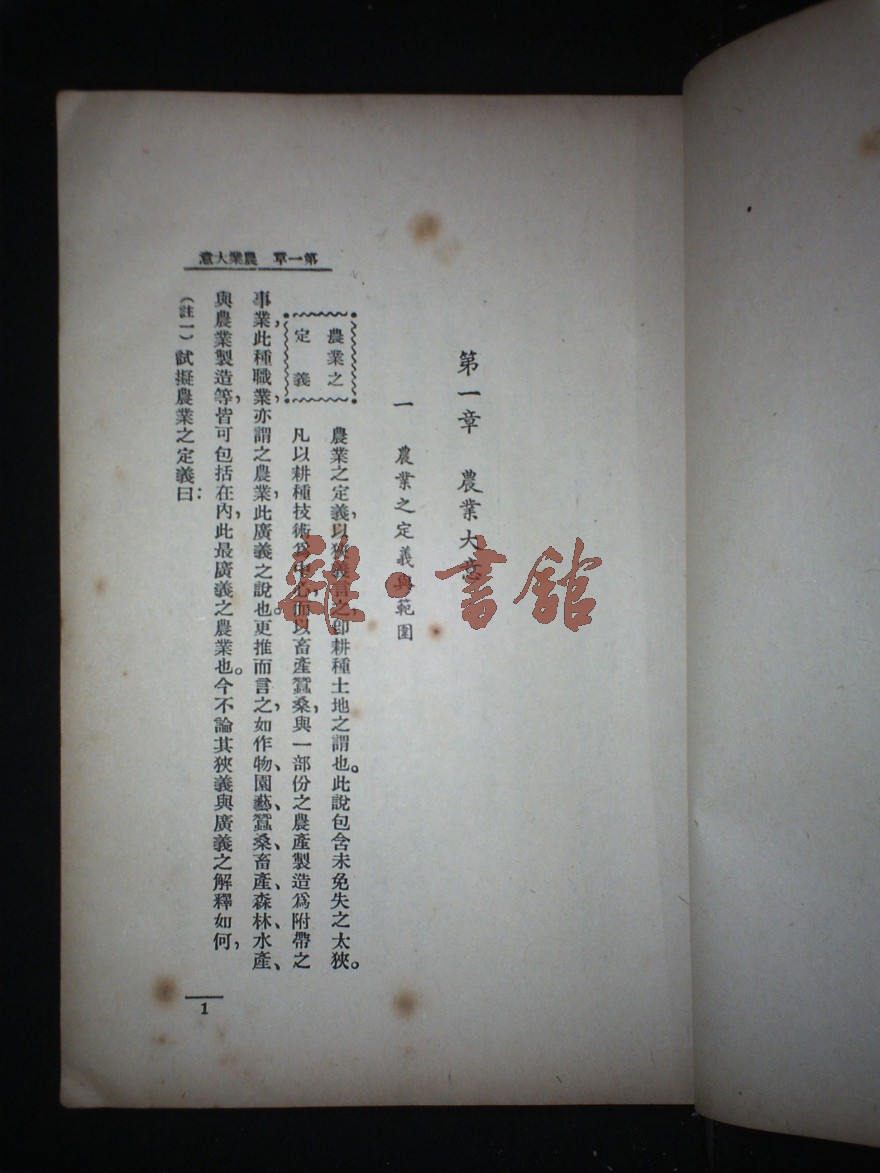 第一章 農業大意
第一章 農業大意
一 農業之定義與範圍
農業之
定義
農業之定義,以狹義言之,卽耕種土地之謂也。此說包含未免失之太狹。
凡以耕種技術爲中心,而以畜產蠶桑,與一部份之農產製造爲附帶之
事業,此種職業,亦謂之農業,此廣義之說也。更推而言之,如作物、園藝、蠶桑、畜產、森林、水產、
與農業製造等,皆可包括在內,此最廣義之農業也。今不論其狹義與廣義之解釋如何,
(註一)試擬農業之定義曰:
1
雜·書館